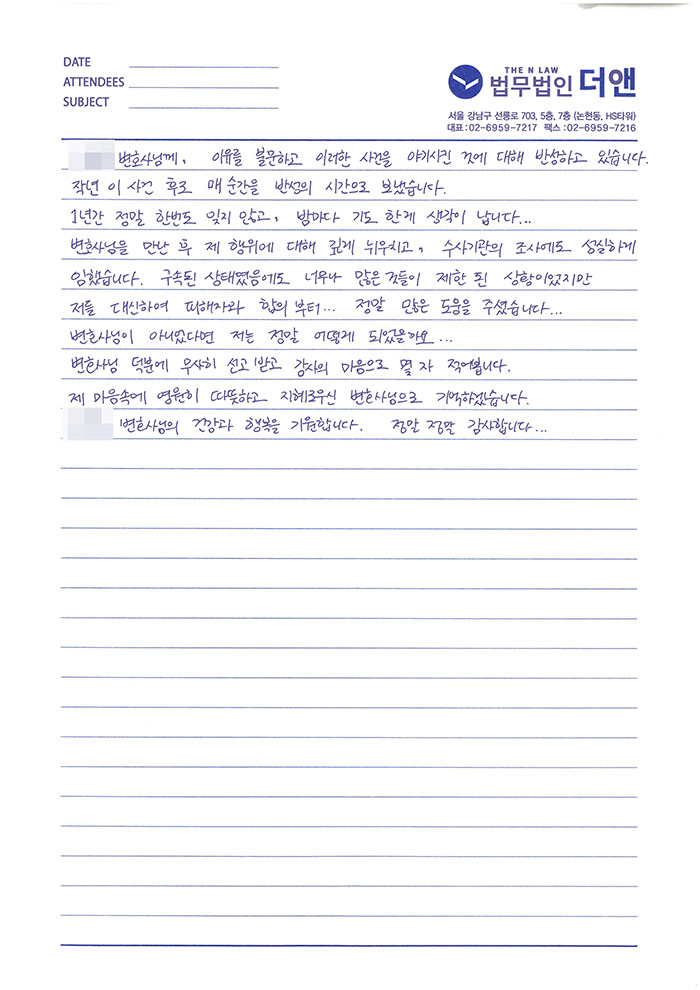 DATE
ATTENDEES
SUBJECT
THE N LAW
법무법인 더앤
서울 강남구 선릉로 703, 5층, 7층 (논현동, HS타워)
대표 : 02-6959-7217 팩스 : 02-6959-7216
변호사님께, 이유를 불문하고 이러한 사건을 야기시킨 것에 대해 반성하고 있습니다.
작년 이 사건 후로 매 순간을 반성의 시간으로 보냈습니다.
1년간 정말 한번도 잊지 않고, 밤마다 기도 한게 생각이 납니다...
변호사님을 만난 후 제 행위에 대해 깊게 뉘우치고, 수사기관의 조사에도 성실하게
임했습니다. 구속된 상태였음에도 너무나 많은 것들이 제한 된 상황이었지만
저를 대신하여 피해자와 합의 부터... 정말 많은 도움을 주셨습니다...
변호사님이 아니었다면 저는 정말 어떻게 되었을까요...
변호사님 덕분에 무사히 선고 받고 감사의 마음으로 몇 자 적어봅니다.
제 마음속에 영원히 따뜻하고 지혜로우신 변호사님으로 기억하겠습니다.
변호사님의 건강과 행복을 기원합니다. 정말 정말 감사합니다...